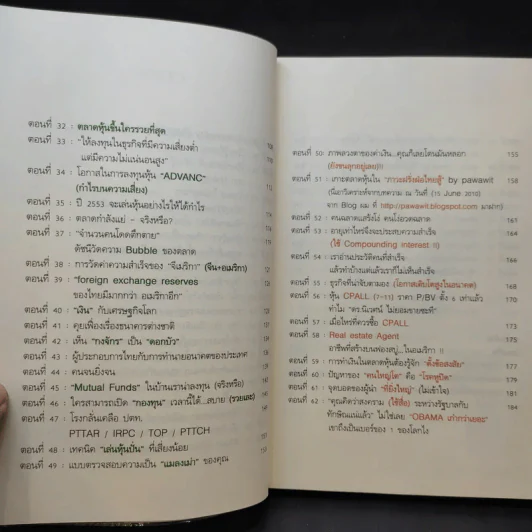 ตอนที่ 32 : ตลาดหุ้นขึ้นใครรวยที่สุด
ตอนที่ 33 : "ให้ลงทุนในธุรกิจที่มีความเสี่ยงต่ำ
แต่มีความไม่แน่นอนสูง"
ตอนที่ 34 : โอกาสในการลงทุนหุ้น "ADVANC"
(กำไรบนความเสี่ยง)
ตอนที่ 35 : ปี 2553 จะเล่นหุ้นอย่างไรให้ได้กำไร
ตอนที่ 36 : ตลาดกำลังแย่ - จริงหรือ?
ตอนที่ 37 : "จำนวนคนโดดตึกตาย"
ดัชนีวัดความ Bubble ของตลาด
ตอนที่ 38 : การวัดค่าความสำเร็จของ "จีเมริกา" (จีน+อเมริกา)
ตอนที่ 39 : "foreign exchange reserves
ของไทยมีมากกว่า อเมริกาอีก"
ตอนที่ 40 : "เงิน" กับเศรษฐกิจโลก
ตอนที่ 41 : คุยเฟื่องเรื่องธนาคารต่างชาติ
ตอนที่ 42 : เห็น "กงจักร" เป็น "ดอกบัว"
ตอนที่ 43 : ผู้ประกอบการไทยกับการทำนายอนาคตของประเทศ
ตอนที่ 44 : คนจนยิ่งจน
ตอนที่ 45 : "Mutual Funds" ในบ้านเราน่าลงทุน (จริงหรือ)
ตอนที่ 46 : ใครสามารถเปิด "กองทุน" เวลานี้ได้...สบาย (รวยเละ)
ตอนที่ 47 : โรงกลั่นเคลือ ปตท.
PTTAR / IRPC / TOP / PTTCH
ตอนที่ 48 : เทคนิค "เล่นหุ้นปั่น" ที่เสี่ยงน้อย
ตอนที่ 49 : แบบตรวจสอบความเป็น "แมลงเม่า" ของคุณ
ตอนที่ 50: ภาพลวงตาของค่าเงิน...คุณก็เลยโดนมันหลอก 155
(ยังขนลุกอยู่เลย)!!
ตอนที่ 51 : เกาะตลาดหุ้นใน "ภาวะฝรั่งผัดไทยสู้" by pawawit 158
(นี่เอาวิเคราะห์จากบทความ ณ วันที่ (15 June 2010)
จาก Blog ผม คือ http://pawawit.blogspot.com มาฝาก)
ตอนที่ 52 : คนฉลาดแสร้งโง่ คนโง่อวดฉลาด 161
ตอนที่ 53 : อายุเท่าไหร่จึงจะประสบความสำเร็จ 164
(ใช้ Compounding interest !!)
ตอนที่ 54 : เราอ่านประวัติคนที่สำเร็จ
แล้วทำบ้างแต่แล้วเราก็ไม่เห็นสำเร็จ
ตอนที่ 55 : ธุรกิจที่น่าจับตามอง (โอกาสเติบโตสูงในอนาคต)
ตอนที่ 56 : หุ้น CPALL (7-11) ราคา P/BV ตั้ง 6 เท่าแล้ว
ทำไม "ดร.นิเวศน์ ไม่ยอมขายซะที"
ตอนที่ 57 : เมื่อไหร่ที่ควรซื้อ CPALL 173
ตอนที่ 58 : Real estate Agent 175
อาชีพที่สร้างบนฟองสบู่...ในอเมริกา !!
ตอนที่ 59 : การทำเงินในตลาดหุ้นต้องรู้จัก "ตั้งข้อสงสัย" 177
ตอนที่ 60 : ปัญหาของ "คนใหญ่โต" คือ "โรคหูปิด" 179
ตอนที่ 61 : จุดบอดของผู้นำ "ที่ยิ่งใหญ่" (ไม่เข้าใจ) 181
ตอนที่ 62 : "คุณคิดว่าสงคราม (ใช้สื่อ) ระหว่างรัฐบาลกับ 184
ทักษิณแน่แล้ว" ไม่ใช่เลย "OBAMA เก๋ากว่าเยอะ"
เขาถึงเป็นเบอร์ของ 1 ของโลกไง